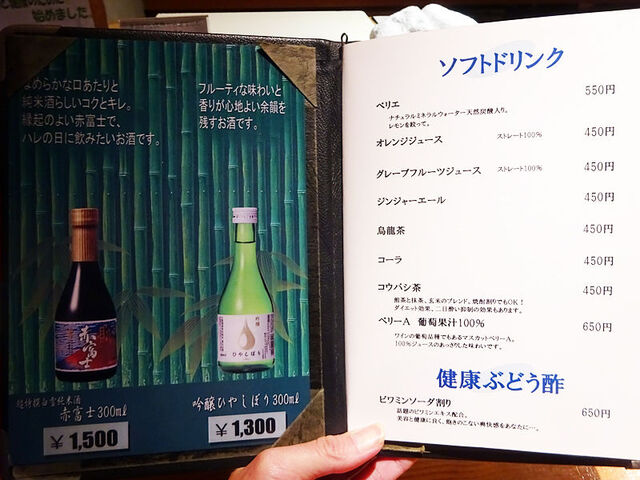 始めました
なめらかな口あたりと
純米酒らしいコクとキレ。
縁起のよい赤富士で、
ハレの日に飲みたいお酒です。
フルーティな味わいと
香りが心地よい余韻を
残すお酒です。
赤富士
吟醸
ひやしぼり
超特撰白雪純米酒
赤富士 300㎖
¥1,500
吟醸ひやしぼり 300㎖
¥1,300
ソフトドリンク
ペリエ 550円
ナチュラルミネラルウォーター天然炭酸入り。
レモンを絞って。
オレンジジュース ストレート100% 450円
グレープフルーツジュース ストレート100% 450円
ジンジャーエール 450円
烏龍茶 450円
コーラ 450円
コウバシ茶 450円
煎茶と抹茶、玄米のブレンド。焼酎割りでもOK！
ダイエット効果、二日酔い抑制の効果もあります。
ベリーA 葡萄果汁100% 650円
ワインの葡萄品種でもあるマスカットベリーA。
100%ジュースのあっさりした味わいです。
健康ぶどう酢
ビワミンソーダ割り 650円
話題のビワミンエキス配合。
美容と健康に良く、飽きのこない爽快感をあなたに…。